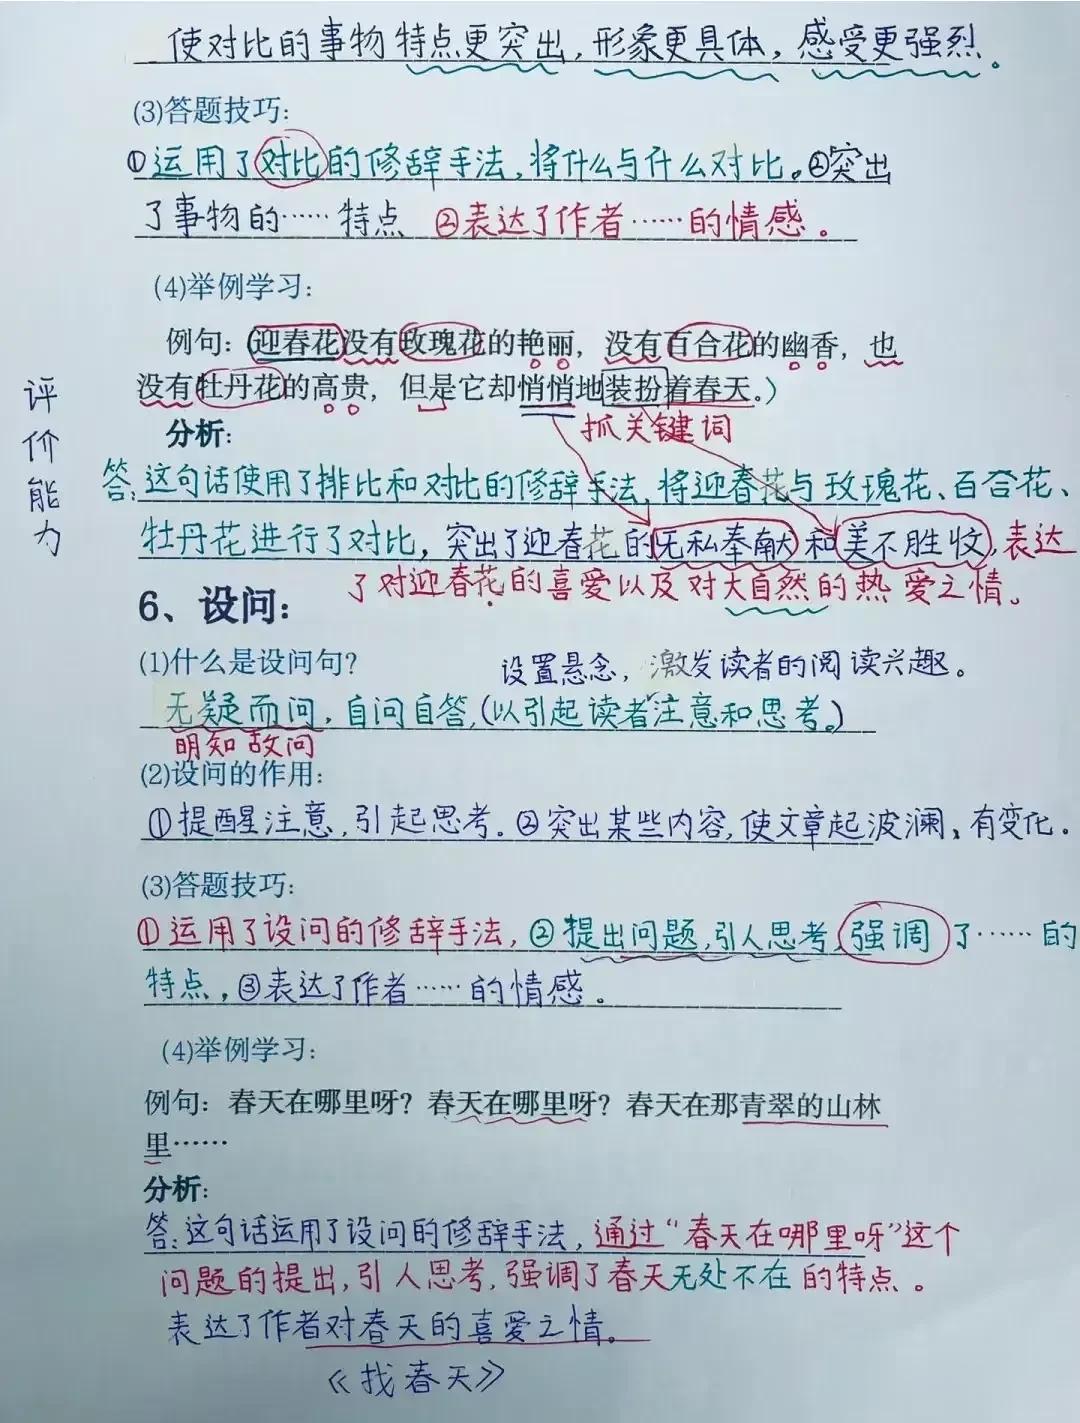 使对比的事物特点更突出，形象更具体，感受更强烈。
(3)答题技巧：
①运用了对比的修辞手法，将什么与什么对比。②突出
了事物的……特点 ②表达了作者……的情感。
(4)举例学习：
例句：(迎春花没有玫瑰花的艳丽，没有百合花的幽香，也
没有牡丹花的高贵，但是它却悄悄地装扮着春天。)
评价能力
分析：
抓关键词
答：这句话使用了排比和对比的修辞手法，将迎春花与玫瑰花、百合花、
牡丹花进行了对比，突出了迎春花的无私奉献和美不胜收，表达
了对迎春花的喜爱以及对大自然的热爱之情。
6、设问：
(1)什么是设问句？
设置悬念，激发读者的阅读兴趣。
无疑而问，自问自答，(以引起读者注意和思考。)
明知故问
(2)设问的作用：
①提醒注意，引起思考。②突出某些内容，使文章起波澜、有变化。
(3)答题技巧：
①运用了设问的修辞手法，②提出问题，引人思考，强调了……的
特点，③表达了作者……的情感。
(4)举例学习：
例句：春天在哪里呀？春天在哪里呀？春天在那青翠的山林
里……
分析：
答：这句话运用了设问的修辞手法，通过“春天在哪里呀”这个
问题的提出，引人思考，强调了春天无处不在的特点。
表达了作者对春天的喜爱之情。
《找春天》